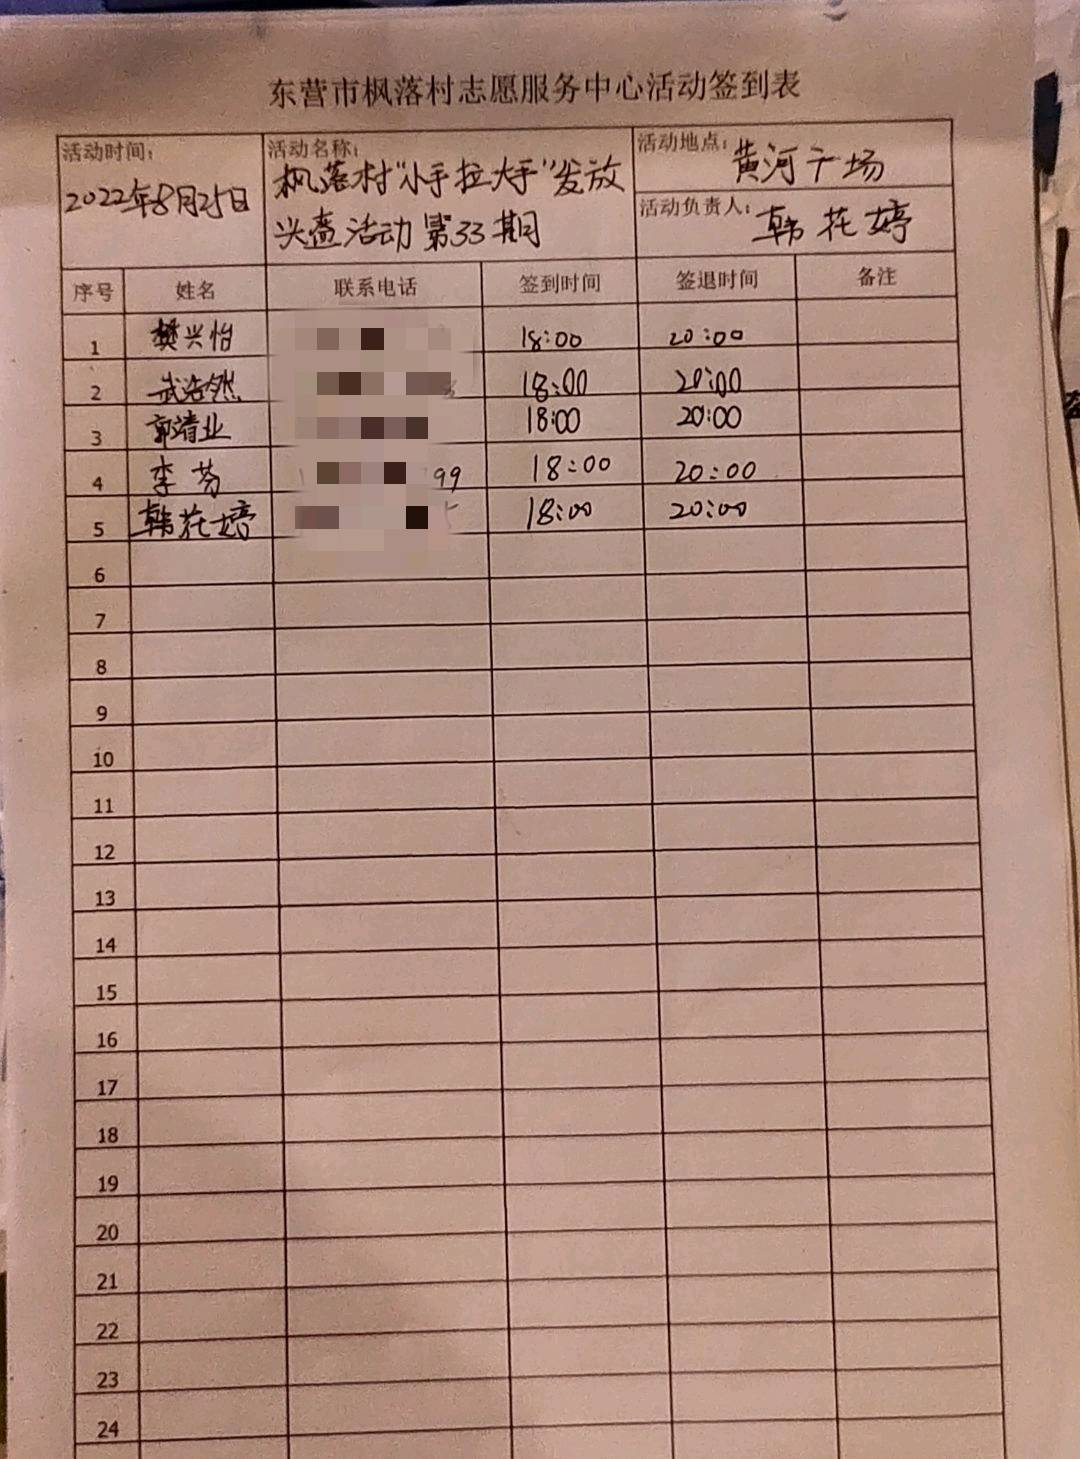 东营市枫落村志愿服务中心活动签到表
活动时间：
2022年8月25日
活动名称：
枫落村“小手拉大手”发放
头盔活动第33期
活动地点：
黄河广场
活动负责人：
韩花婷
序号 姓名 联系电话 签到时间 签退时间 备注
1 樊兴怡 18:00 20:00
2 武浩然 18:00 20:00
3 郭靖业 18:00 20:00
4 李芬 99 18:00 20:00
5 韩花婷 18:00 20:00
6
7
8
9
10
11
12
13
14
15
16
17
18
19
20
21
22
23
24